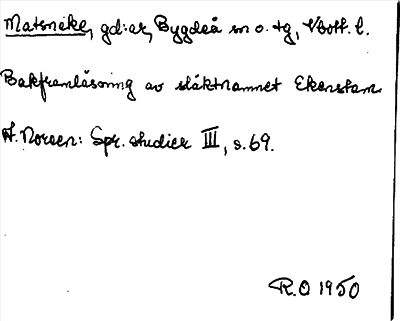 Matsneke, gd:ar, Bygdeå sn o. tg, Vbott. l.
Bakframläsning av släktnamnet Ekenstam.
A. Noreen: Spr. studier III, s. 69.
R.O 1950